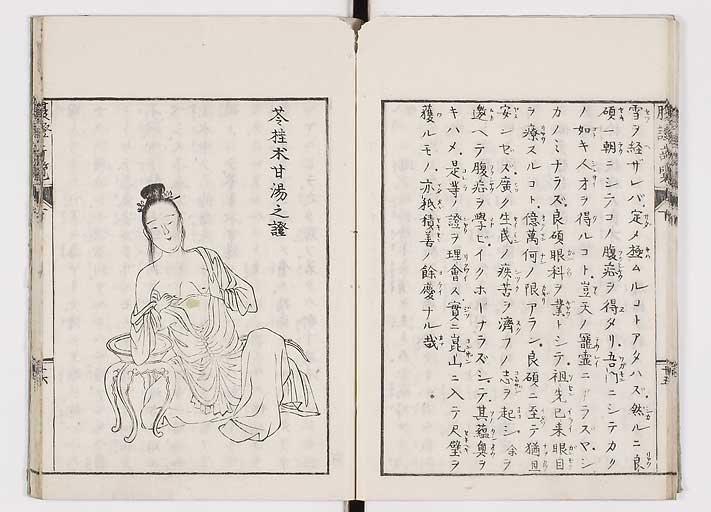 雪ヲ経ザレバ定メ極ムルコトアタハズ然ルニ良
碩一朝ニシテコノ腹症ヲ得タリ吾門ニシテカク
ノ如キ人才ヲ得ルコト豈天ノ寵霊ニアラズヤシ
カノミナラズ良碩眼科ヲ業トシテ祖先已来眼目
ヲ療スルコト億萬何ノ限アラン良碩ニ至テ猶且
安ンゼズ廣ク生民ノ疾苦ヲ濟フノ志ヲ起シ余ヲ
邀ヘテ腹症ヲ學ビイクホーナラズシテ其蘊奥ヲ
キハメ是等ノ證ヲ理會ス實ニ崑山ニ入テ尺璧ヲ
獲ルモノ亦秪積善ノ餘慶ナル哉
苓桂朮甘湯之證